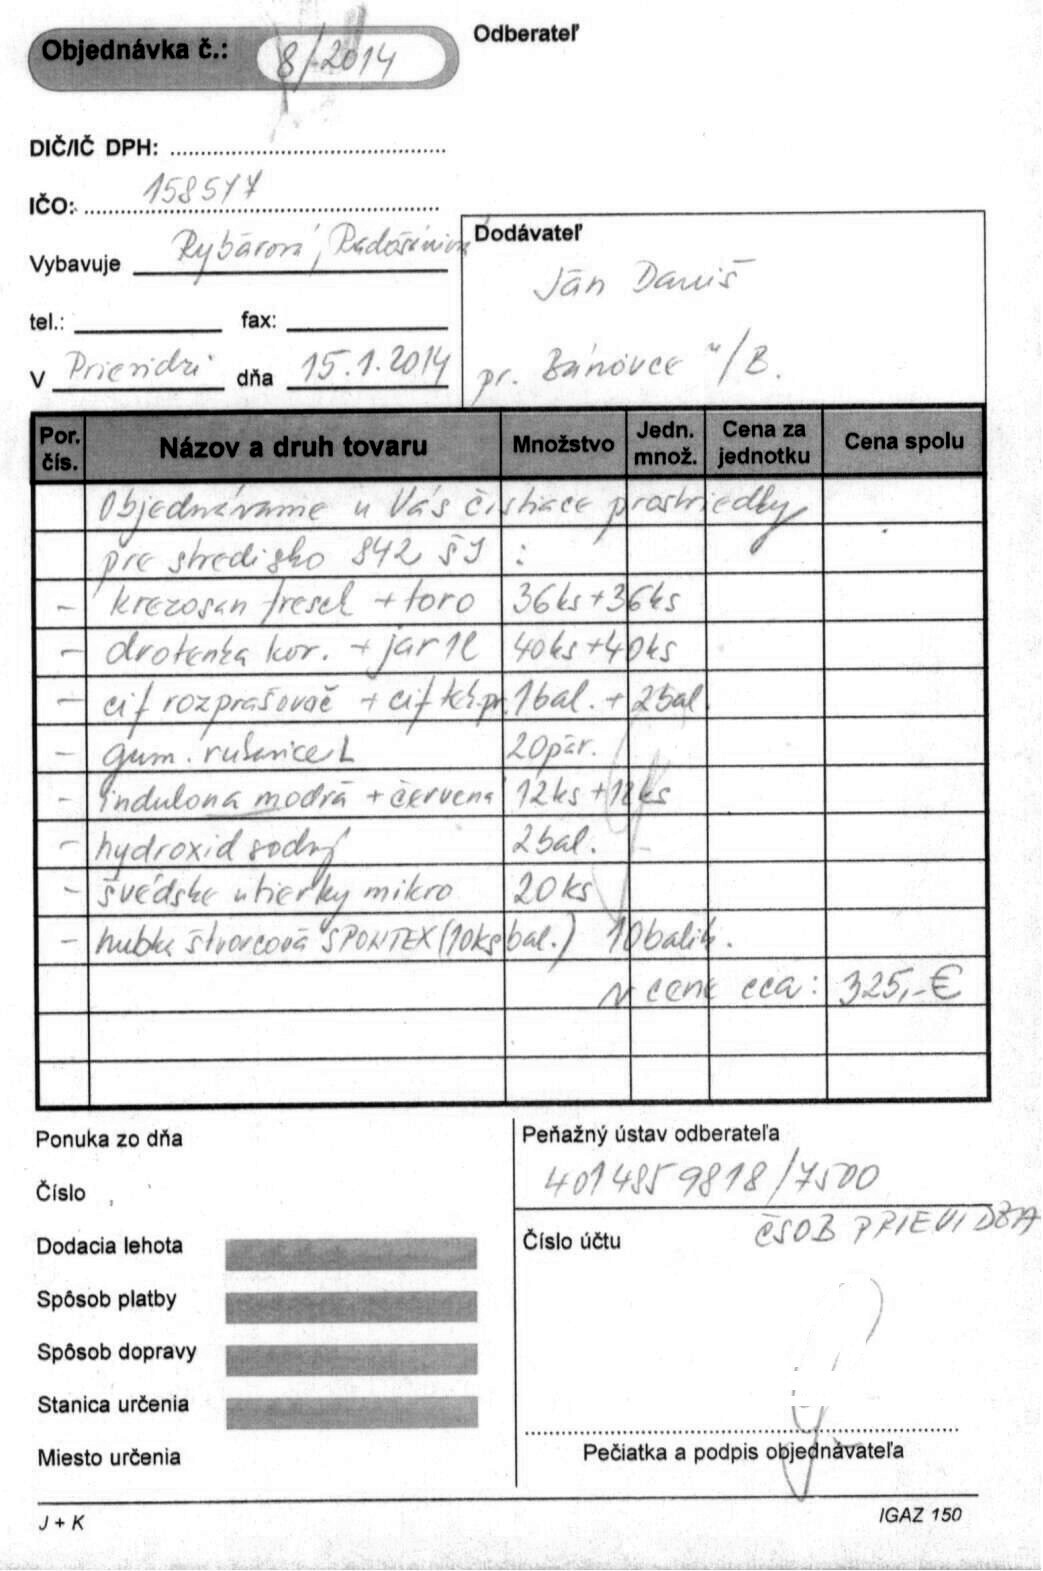 Objednávka č.: 8/2014
Odberateľ
DIČ/IČ DPH:
IČO: 158577
Vybavuje Rybárová,
Dodávateľ
Ján Daniš
tel.: fax:
V Prievidzi dňa 15.1.2014
pr. Bánovce n/B.
Por. čís. Názov a druh tovaru Množstvo Jedn. množ. Cena za jednotku Cena spolu
Objednávame u Vás čistiace prostriedky
pre stredisko 842 ŠJ :
- krezosan fresch + toro 36ks+36ks
- drotenka kor. + jar 1l 40ks+40ks
- cif rozprašovač + cif tek.pr. 1bal. + 2bal.
- gum. rukavice L 20pár.
- indulona modrá + červená 12ks +12ks
- hydroxid sodný 2bal.
- švédske utierky mikro 20ks
- hubka štvorcová SPONTEX (10ks bal.) 10balík.
v cene cca: 325,-€
Ponuka zo dňa
Peňažný ústav odberateľa
4014859818/7500
Číslo
ČSOB PRIEVIDZA
Dodacia lehota
Číslo účtu
Spôsob platby
Spôsob dopravy
Stanica určenia
Miesto určenia
Pečiatka a podpis objednávateľa
J + K
IGAZ 150